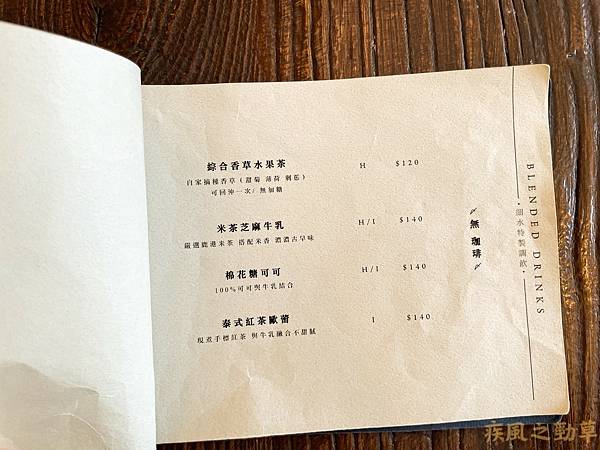 綜合香草水果茶 H $120
自家摘種香草(甜菊 薄荷 刺蔥)
可回沖一次/無加糖
米茶芝麻牛乳 H/I $140
嚴選鹿港米茶 搭配米香 濃濃古早味
棉花糖可可 H/I $140
100%可可與牛乳結合
泰式紅茶歐蕾 I $140
現煮手標紅茶 與牛乳融合不甜膩
無 珈琲
·細水特製調飲·
BLENDED DRINKS
疾風之勁草